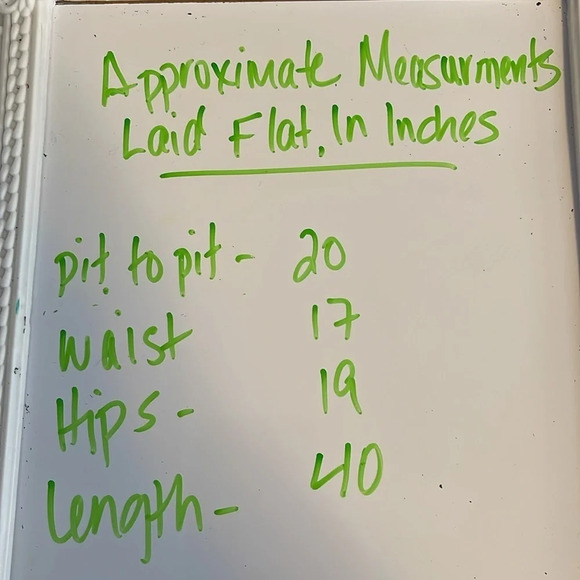 Approximate Measurments
Laid Flat, In Inches
pit to pit - 20
waist 17
Hips - 19
length - 40